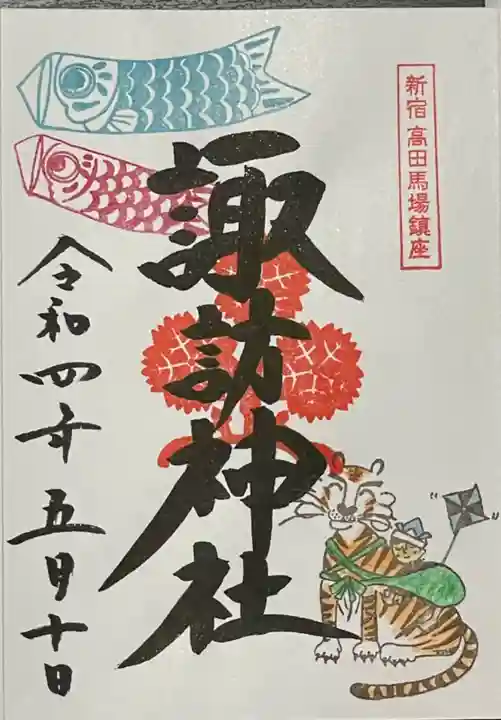 新宿 高田馬場鎮座
諏訪神社
令和四年五月十日